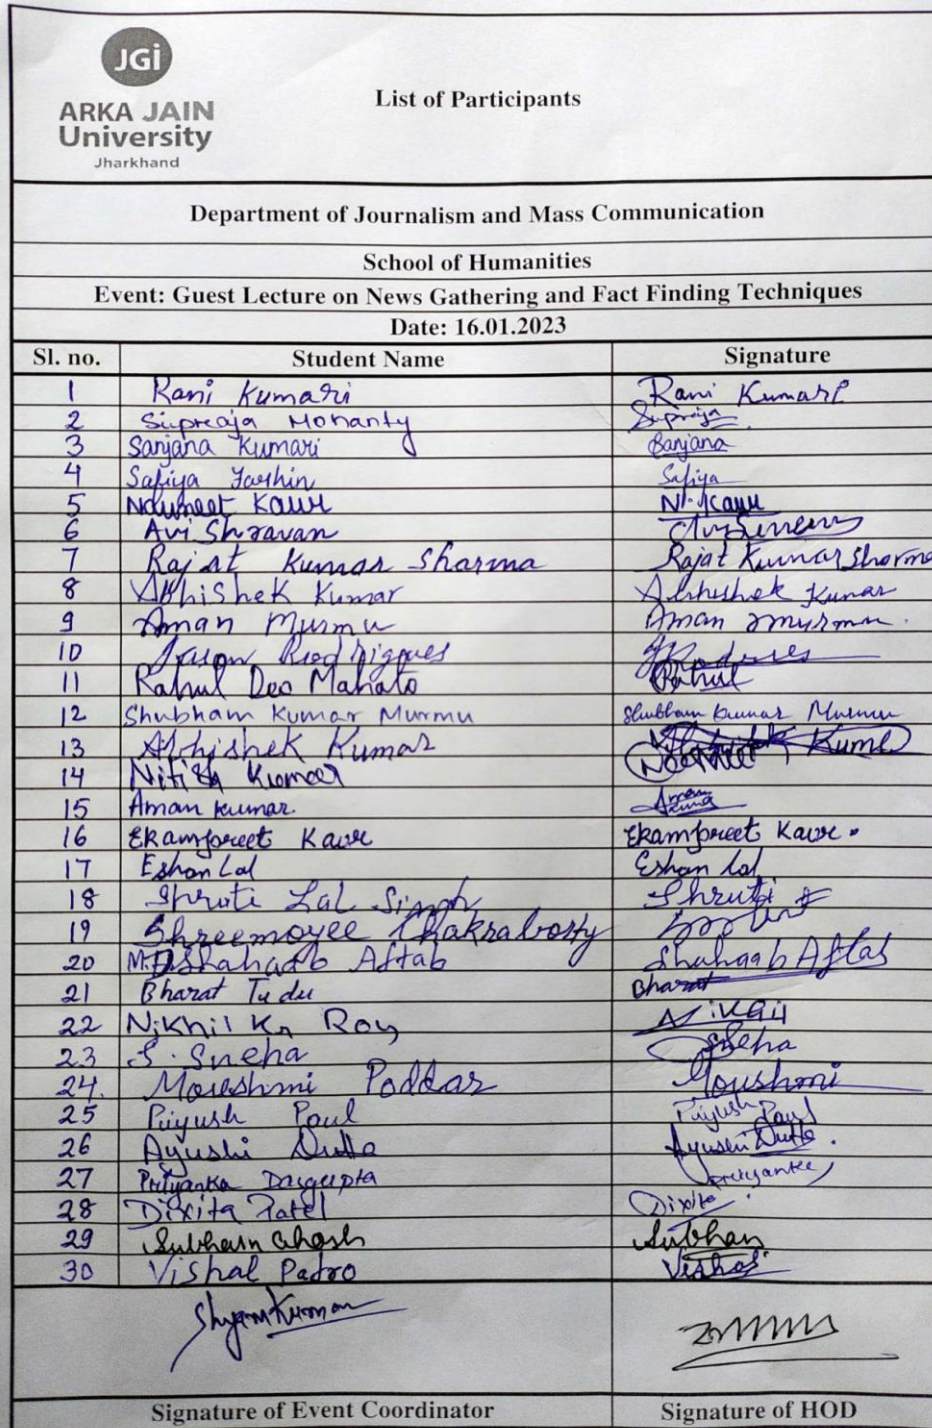 JGi
ARKA JAIN
University
Jharkhand
List of Participants
Department of Journalism and Mass Communication
School of Humanities
Event: Guest Lecture on News Gathering and Fact Finding Techniques
Date: 16.01.2023
Sl. no. Student Name Signature
1 Rani Kumari Rani Kumari
2 Supreaja Mohanty Supreaja
3 Sanjana Kumari Sanjana
4 Safiya Safiya
5 Navmeet Kaur N. Kaur
6 Avi Shravan
7 Rajat Kumar Sharma Rajat Kumar Sharma
8 Abhishek Kumar Abhishek Kumar
9 Aman Murmu Aman Murmu
10 Jason Rodrigues
11 Rahul Deo Mahato Rahul
12 Shubham Kumar Murmu Shubham Kumar Murmu
13 Abhishek Kumar
14 Nitish Kumar
15 Aman Kumar. Aman Kumar
16 Ekampreet Kaur Ekampreet Kaur.
17 Eshan Lal Eshan Lal
18 Shruti Lal Singh Shruti
19 Shreemoyee Chakraborty
20 Md Shahaab Aftab Shahaab Aftab
21 Bharat Tudu Bharat
22 Nikhil Kr Roy
23 S. Sneha Sneha
24. Moushmi Poddar Moushmi
25 Piyush Paul Piyush Paul
26 Ayushi Dutta Ayushi Dutta.
27 Priyanka Dasgupta
28 Dixita Patel Dixita
29 Subham Ghosh Subham
30 Vishal Patro Vishal
Shyam Kumar
Signature of Event Coordinator Signature of HOD